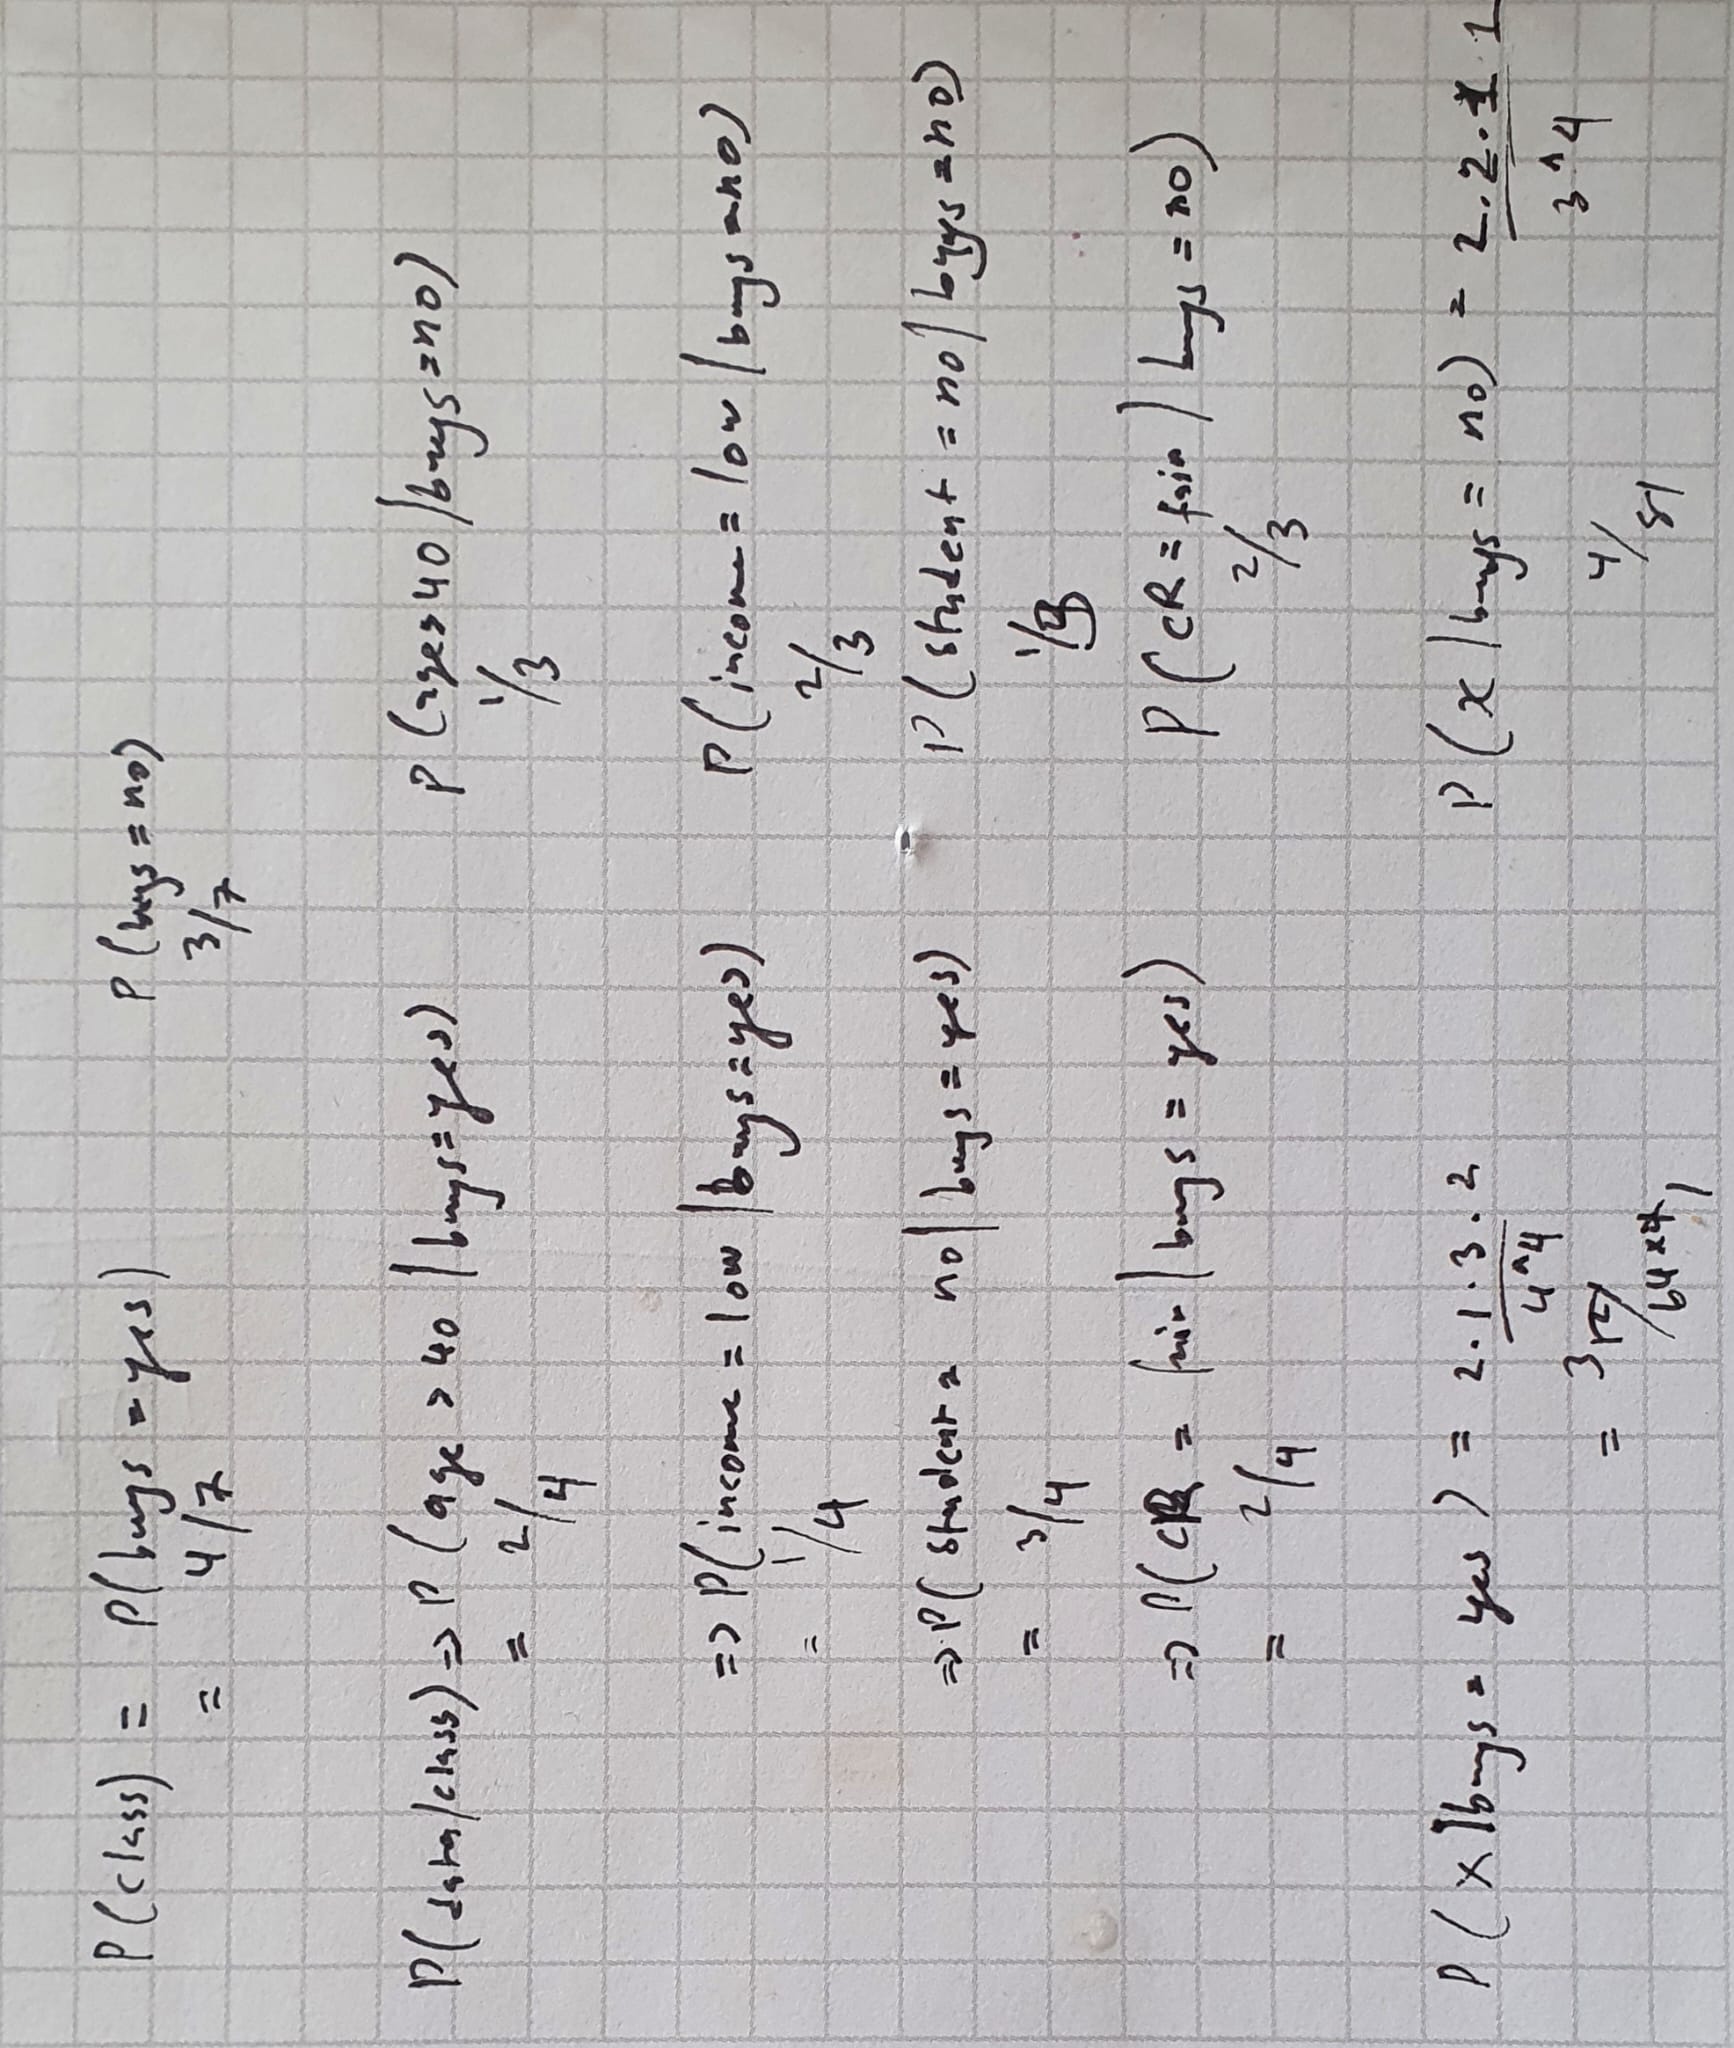 P(class) = P(buys = yes) P(buys = no)
= 4/7 3/7
P(data/class) => P(age > 40 | buys = yes) P(age > 40 | buys = no)
= 2/4 1/3
=> P(income = low | buys = yes) P(income = low | buys = no)
= 1/4 2/3
=> P(student = no | buys = yes) P(student = no | buys = no)
= 3/4 1/3
=> P(CR = fair | buys = yes) P(CR = fair | buys = no)
= 2/4 2/3
P(x | buys = yes) = 2.1.3.2 P(x | buys = no) = 2.2.1.1
4^4 3^4
= 3 4/81
64